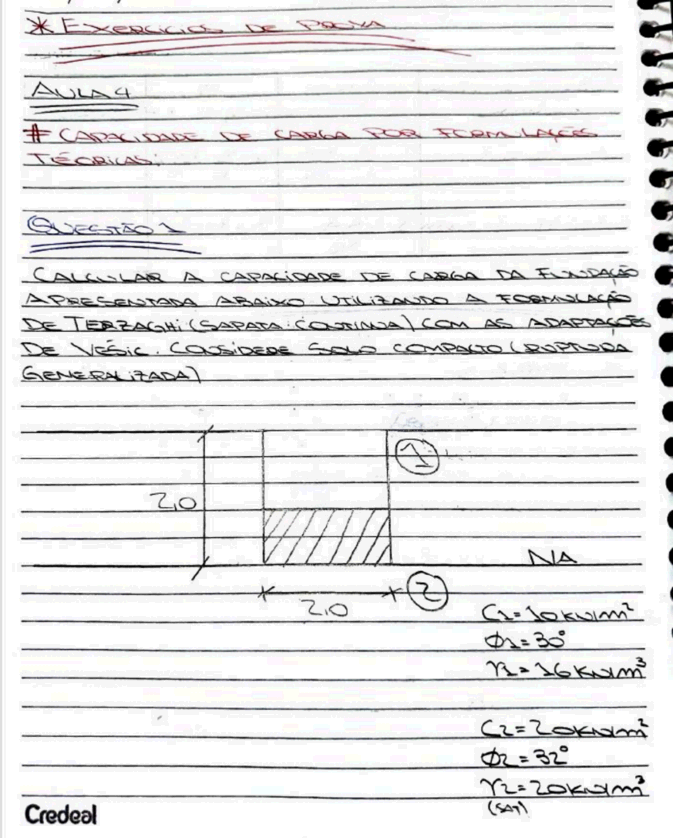 * EXERCÍCIOS DE PROVA
AULA 4
# CAPACIDADE DE CARGA POR FORMULAÇÕES
TEÓRICAS:
QUESTÃO 1
CALCULAR A CAPACIDADE DE CARGA DA FUNDAÇÃO
APRESENTADA ABAIXO UTILIZANDO A FORMULAÇÃO
DE TERZAGHI (SAPATA CONTINUA) COM AS ADAPTAÇÕES
DE VÉSIC. CONSIDERE SOLO COMPACTO (RUPTURA
GENERALIZADA)
1
2,0
NA
2
2,0
C1 = 10 KN/m²
Φ1 = 30°
γ1 = 16 KN/m³
C2 = 20 KN/m²
Φ2 = 32°
γ2 = 20 KN/m³
(SAT)
Credeal